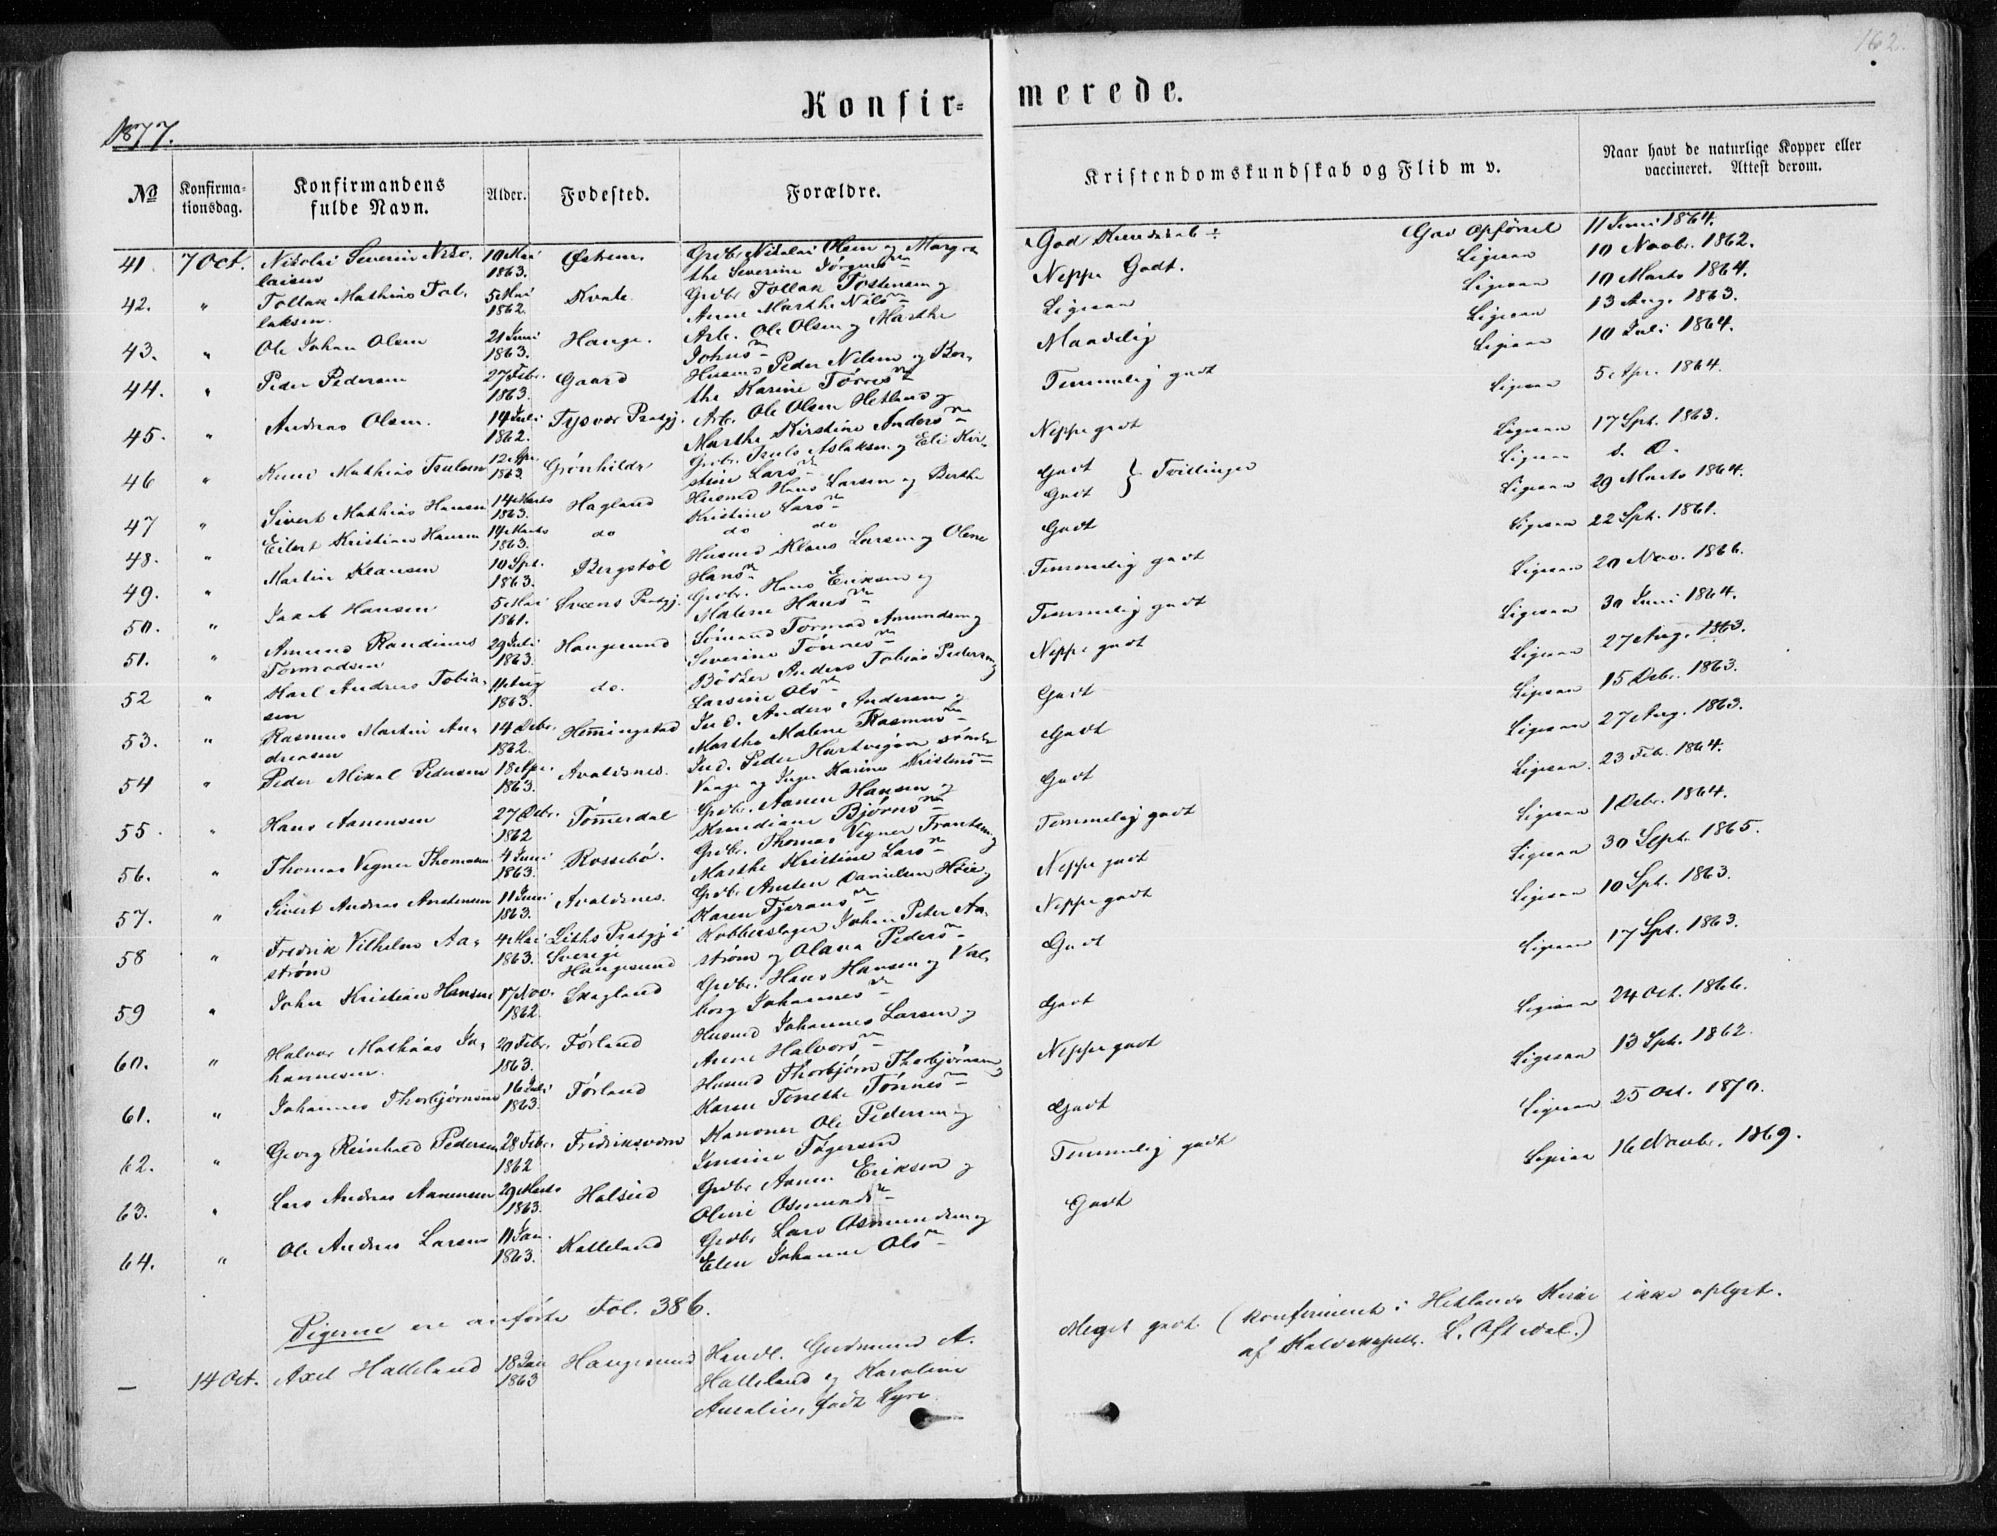 162.
Konfir= merede.
1877.
No Konfirma-tionsdag. Konfirmandens fulde Navn. Alder. Fødested. Forældre. Kristendomskundskab og Flid m v. Naar havt de naturlige Kopper eller vaccineret. Attest derom.
41. 7 Oct. Nikolai Severin Niko- 10 Mai Østrem. Grdbr. Nikolai Olsen og Margre God Kundskab ÷ God Opførsel 11 Juni 1864.
laisen 1863. the Severine Jørgens
42. " Tollak Mathias Tol- 5 Mai Kvale. Grdbr Tollak Tostensen og Neppe Godt. Ligesaa 10 Novbr. 1862.
laksen. 1862. Anne Marthe Nils
43. " Ole Johan Olsen 21 Juni Hauge. Arb. Ole Olsen og Marthe Ligesaa Ligesaa 10 Marts 1864.
1863. Johns
44. " Peder Pedersen 27 Febr. Gaard Husmd Peder Nilsen og Ber- Maadelig Ligesaa 13 Aug. 1863.
1863. the Karine Tørres
45. " Andreas Olsen. 14 Juli Tysvær Prstgj. Arb. Ole Olsen Hetland og Temmelig godt Ligesaa 10 Juli 1864.
1862. Marthe Kirstine Anders
46 " Knud Mathias Trulsen 12 Apr. Grønhilde Grdbr. Truls Aslaksen og Eli Kir- Neppe godt Ligesaa 5 Apr. 1864.
1863. stine Lars
47 " Sivert Mathias Hansen 14 Marts Hagland Husmd Hans Larsen og Berthe Godt } Tvillinger Ligesaa 17 Spt. 1863.
1863. Kristine Lars
48. " Eilert Kristian Hansen 14 Marts do do do Godt Ligesaa d. O.
1863.
49. " Martin Klausen 10 Spt. Bergstøl Husmd Klaus Larsen og Olene Godt Ligesaa 29 Marts 1864.
1863. Hans
50. " Jakob Hansen 5 Mai Sveens Prstgj. Grdbr. Hans Eriksen og Temmelig godt Ligesaa 22 Spt. 1861.
1861. Malene Hans
51. " Amund Randinius 29 Juli Haugesund Sømand Tormod Amundsen og Temmelig godt Ligesaa 20 Nov. 1866.
Tormodsen 1863. Severine Tønnes
52 " Karl Andreas Tobia- 11 Aug do. Bødker Anders Tobias Pedersen og Neppe godt Ligesaa 30 Juni 1864.
sen 1863. Larsine Ols
53. " Rasmus Martin An- 14 Debr. Hemingstad Ind. Anders Andersen og Godt Ligesaa 27 Aug. 1863.
dreasen 1862. Marthe Malene Rasmus
54 " Peder Mikal Pedersen 18 Apr. Avaldsnes. Ind. Peder Hartvigsen søndre Godt Ligesaa 15 Debr. 1863.
1863. Vaage og Inger Karine Kristens
55. " Hans Aanensen 27 Debr. Tømerdal Grdbr. Aanen Hansen og Godt Ligesaa 27 Aug. 1863.
1862 Kundiane Bjørns
56. " Thomas Vigner Thomassen 4 Juni Rossebø. Grdbr. Thomas Vigner Frantsen og Temmelig godt Ligesaa 23 Feb. 1864.
1863. Marthe Kristine Lars
57. " Sivert Andreas Austensen 11 Juni Avaldsnes. Grdbr Austen Danielsen Høie og Neppe godt Ligesaa 1 Debr. 1864.
1863. Karen Tjerans
58 " Fredrik Vilhelm Aa- 4 Mai Liths Prstgj i Kobberslager Johan Peter Aa- Neppe godt Ligesaa 30 Sept. 1865.
strøm 1863. Sverige strøm og Olava Peders
Haugesund
59 " John Kristian Hansen 17 Nov. Skogland Grdbr. Hans Hansen og Val- Godt Ligesaa 10 Spt. 1863.
1862 borg Johannes
60. " Halvor Mathias Jo- 20 Febr. Førland Husmd Johannes Larsen og Godt Ligesaa 17 Spt. 1863.
hannesen. 1863. Anne Halvors
61. " Johannes Thorbjørnsen 16 Juli Førland Husmd Thorbjørn Thorbjørnsen og Neppe godt Ligesaa 24 Oct. 1866.
1863. Karen Tonethe Tønnes
62. " Georg Reinhold Pedersen 28 Febr. Fredriksværn Kanoner Ole Pedersen og Godt Ligesaa 13 Spt. 1862.
1862 Jensine Tøgersen
63. " Lars Andreas Aanensen 29 Marts Halseid Grdbr Aanen Eriksen og Temmelig godt Ligesaa 25 Oct. 1870.
1863. Oline Osmunds
64. " Ole Andreas Larsen 11 Jan. Kalleland Grdbr Lars Osmundsen og Godt Ligesaa 16 Novbr. 1869.
1863. Elen Johanne Ols
Pigerne ere anførte Fol. 386.
— 14 Oct. Axel Halleland 18 Jan Haugesund Handl. Gudmund A. Meget godt (konfirmeret i Hetlands Kirke ikke oplyst.
1863 Halleland og Karoline af L. Oftedal.)
Amalie, født Lyre